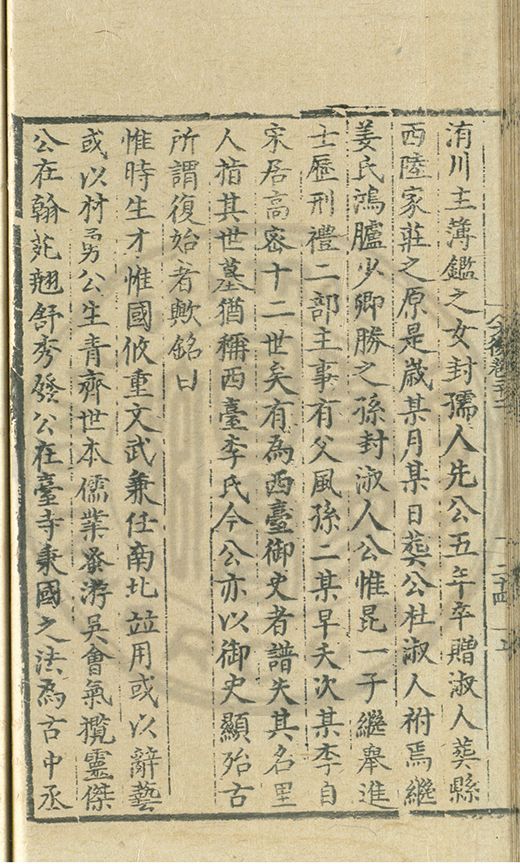 洧川主簿鑑之女封孺人先公五午卒贈淑人葬縣
西陸家莊之原是歲某月某日葬公杜淑人祔焉繼
姜氏鴻臚少卿勝之孫封淑人公惟昆一子繼舉進
士歷刑禮二部主事有父風孫二某早夭次某李自
宋居高密十二世矣有為西臺御史者譜失其名里
人指其世墓猶稱西臺李氏今公亦以御史顯殆古
所謂復始者歟銘曰
惟時生才惟國攸重文武兼任南北竝用或以辭藝
或以材勇公生青齊世本儒業蚤游吳會氣攬靈傑
公在翰苑翹舒秀發公在臺寺秉國之法為古中丞
後卷
二十四